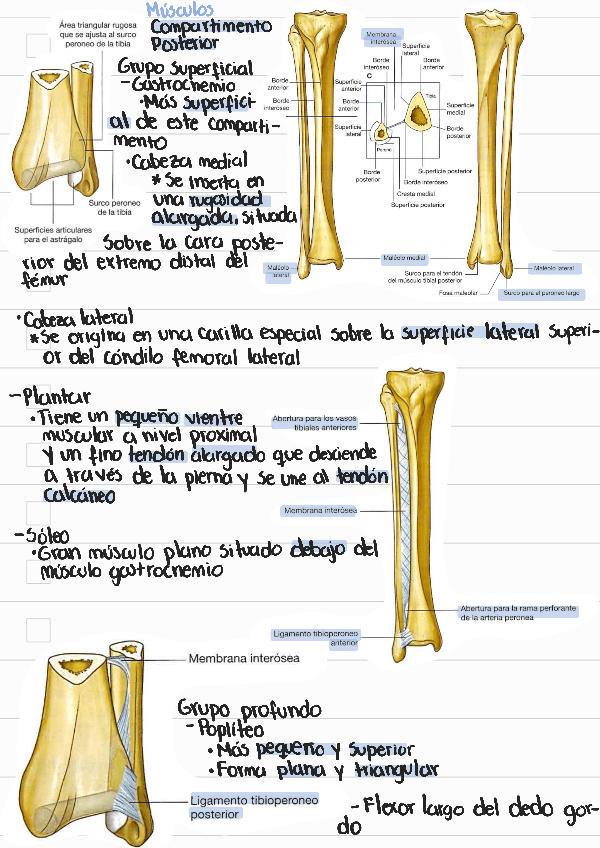 Músculos
Compartimento
Posterior
Grupo Superficial
-Gastrocnemio
•Más superfici-
al de este comparti-
mento
•Cabeza medial
*Se inserta en
una rugosidad
alargada, situada
sobre la cara poste-
rior del extremo distal del
fémur
Área triangular rugosa
que se ajusta al surco
peroneo de la tibia
Surco peroneo
de la tibia
Superficies articulares
para el astrágalo
Borde
anterior
Borde
interóseo
Maléolo
lateral
Membrana
interósea
Superficie
lateral
Borde
interóseo
Borde
anterior
C
Superficie
anterior
Borde
anterior
Superficie
lateral
Tibia
Superficie
medial
Borde
posterior
Peroné
Borde
posterior
Superficie posterior
Borde interóseo
Cresta medial
Superficie posterior
Maléolo medial
Surco para el tendón
del músculo tibial posterior
Fosa maleolar
Maléolo lateral
Surco para el peroneo largo
•Cabeza lateral
*Se origina en una carilla especial sobre la superficie lateral superi-
or del cóndilo femoral lateral
-Plantar
•Tiene un pequeño vientre
muscular a nivel proximal
y un fino tendón alargado que desciende
a través de la pierna y se une al tendón
calcáneo
-Sóleo
•Gran músculo plano situado debajo del
músculo gastrocnemio
Abertura para los vasos
tibiales anteriores
Membrana interósea
Abertura para la rama perforante
de la arteria peronea
Ligamento tibioperoneo
anterior
Membrana interósea
Ligamento tibioperoneo
posterior
Grupo profundo
-Poplíteo
•Más pequeño y superior
•Forma plana y triangular
-Flexor largo del dedo gor-
do